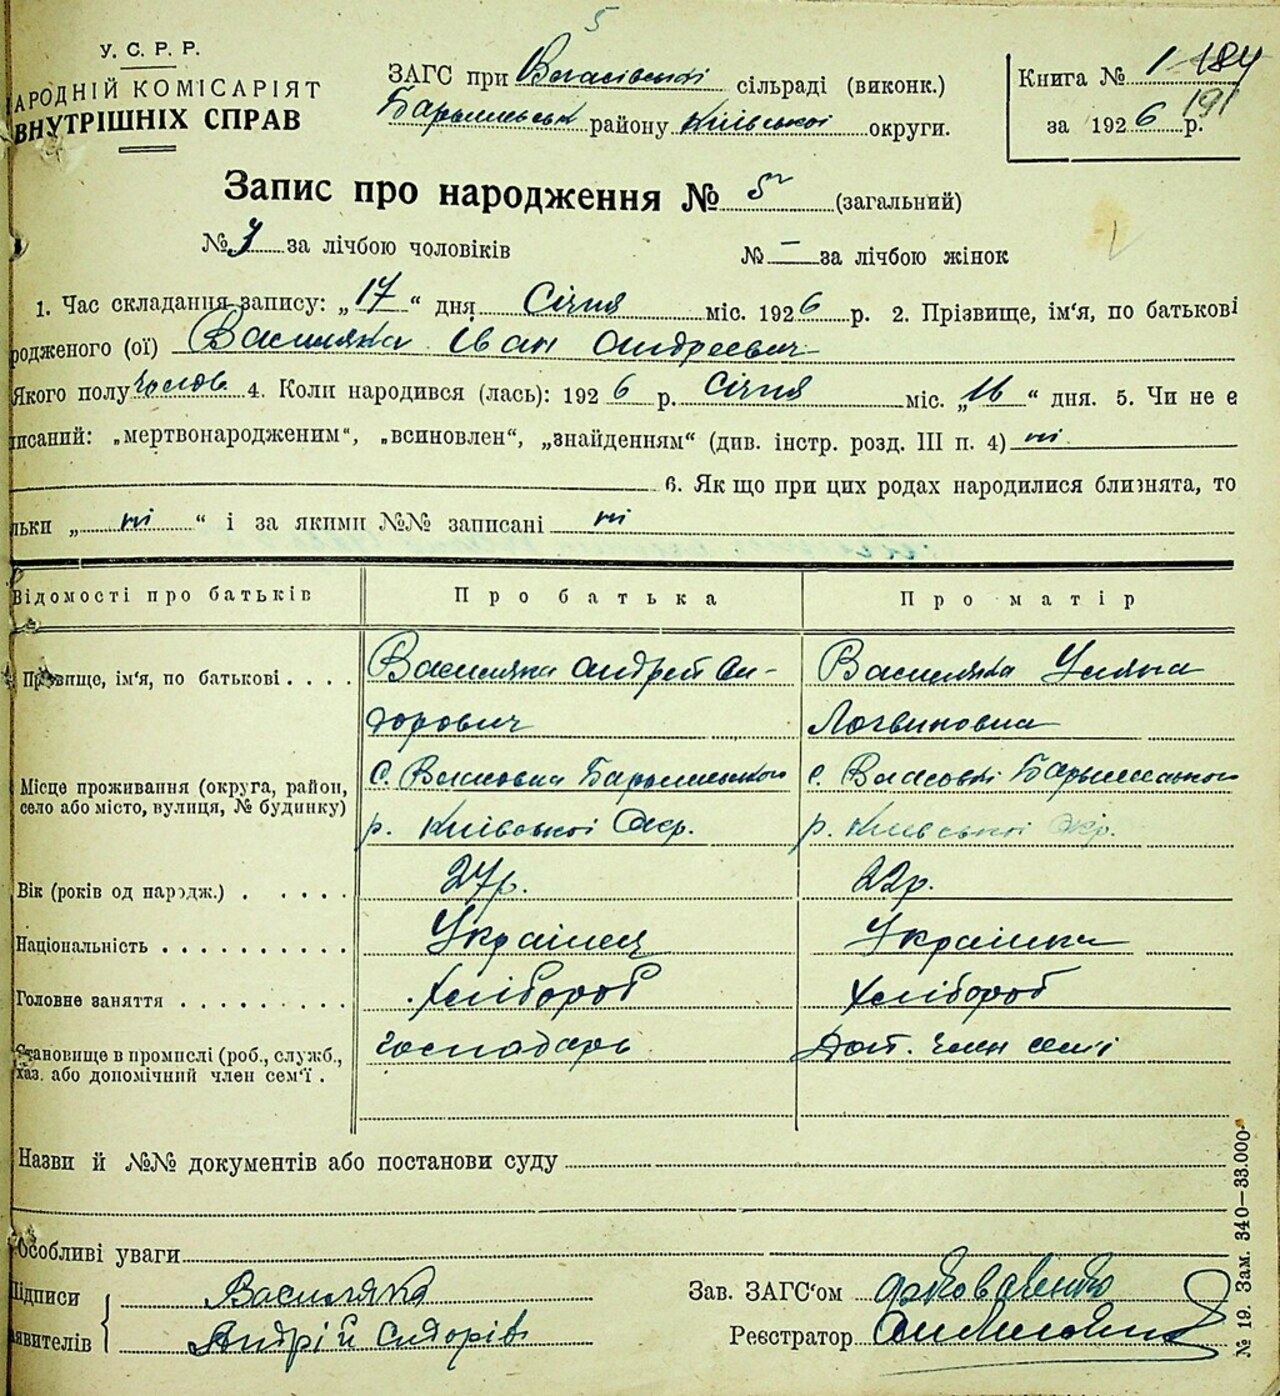 5
У. С. Р. Р.
АРОДНІЙ КОМІСАРІЯТ
ВНУТРІШНІХ СПРАВ
ЗАГС при Власівській сільраді (виконк.)
Баришівськ району Київської округи.
Книга № 1 184
191
за 1926 р.
Запис про народження № 5 (загальний)
№ за лічбою чоловіків
№ — за лічбою жінок
1. Час складання запису: „17“ дня Січня міс. 1926 р. 2. Прізвище, ім'я, по батькові
родженого (ої) Василяка Іван Андреевич
Якого полу чолов. 4. Коли народився (лась): 1926 р. Січня міс. „16“ дня. 5. Чи не є
писаний: „мертвонародженим“, „всиновлен“, „знайденням“ (див. інстр. розд. III п. 4) ні
6. Як що при цих родах народилися близнята, то
льки „ ні “ і за якими №№ записані ні
Відомості про батьків Про батька Про матір
Прізвище, ім'я, по батькові . . . . Василяка Андрей Си- Василяка Уляна
дорович Логвиновна
Місце проживання (округа, район, с. Власовка Баришівського с. Власовкі Баришівського
село або місто, вулиця, № будинку)
р. Київської Окр. р. Київської Окр.
Вік (років од народж.) . . . . . 27 р. 22 р.
Національність . . . . . . . . . . Українец Українка
Головне заняття . . . . . . . . . Хлібороб Хлібороб
Становище в промислі (роб., служб., господарь Доп. член семі
хаз. або допомічний член сем'ї .
Назви й №№ документів або постанови суду
Особливі уваги
Підписи Василяка
явителів Андрій Сидорів
Зав. ЗАГС'ом Коваленко
Реєстратор
№ 19. Зам. 340—33.000